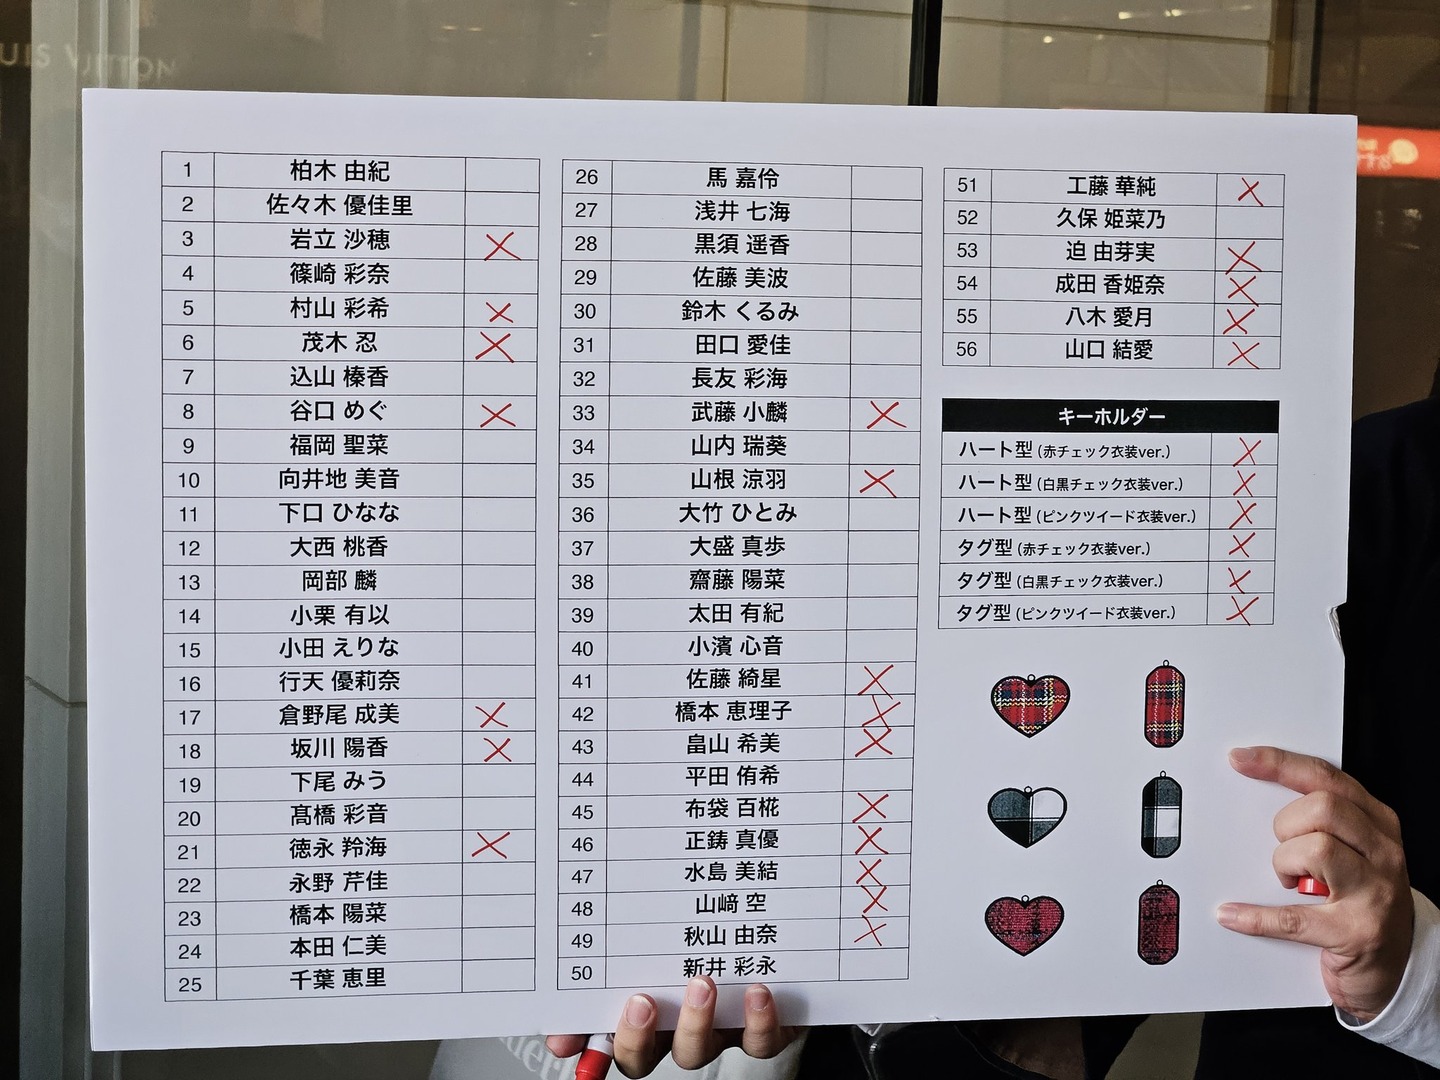 UIS VUITTON
1 柏木 由紀
2 佐々木 優佳里
3 岩立 沙穂
4 篠崎 彩奈
5 村山 彩希
6 茂木 忍
7 込山 榛香
8 谷口 めぐ
9 福岡 聖菜
10 向井地 美音
11 下口 ひなな
12 大西 桃香
13 岡部 麟
14 小栗 有以
15 小田 えりな
16 行天 優莉奈
17 倉野尾 成美
18 坂川 陽香
19 下尾 みう
20 髙橋 彩音
21 徳永 羚海
22 永野 芹佳
23 橋本 陽菜
24 本田 仁美
25 千葉 恵里
26 馬 嘉伶
27 浅井 七海
28 黒須 遥香
29 佐藤 美波
30 鈴木 くるみ
31 田口 愛佳
32 長友 彩海
33 武藤 小麟
34 山内 瑞葵
35 山根 涼羽
36 大竹 ひとみ
37 大盛 真歩
38 齋藤 陽菜
39 太田 有紀
40 小濱 心音
41 佐藤 綺星
42 橋本 恵理子
43 畠山 希美
44 平田 侑希
45 布袋 百椛
46 正鋳 真優
47 水島 美結
48 山﨑 空
49 秋山 由奈
50 新井 彩永
51 工藤 華純
52 久保 姫菜乃
53 迫 由芽実
54 成田 香姫奈
55 八木 愛月
56 山口 結愛
キーホルダー
ハート型 (赤チェック衣装ver.)
ハート型 (白黒チェック衣装ver.)
ハート型 (ピンクツイード衣装ver.)
タグ型 (赤チェック衣装ver.)
タグ型 (白黒チェック衣装ver.)
タグ型 (ピンクツイード衣装ver.)